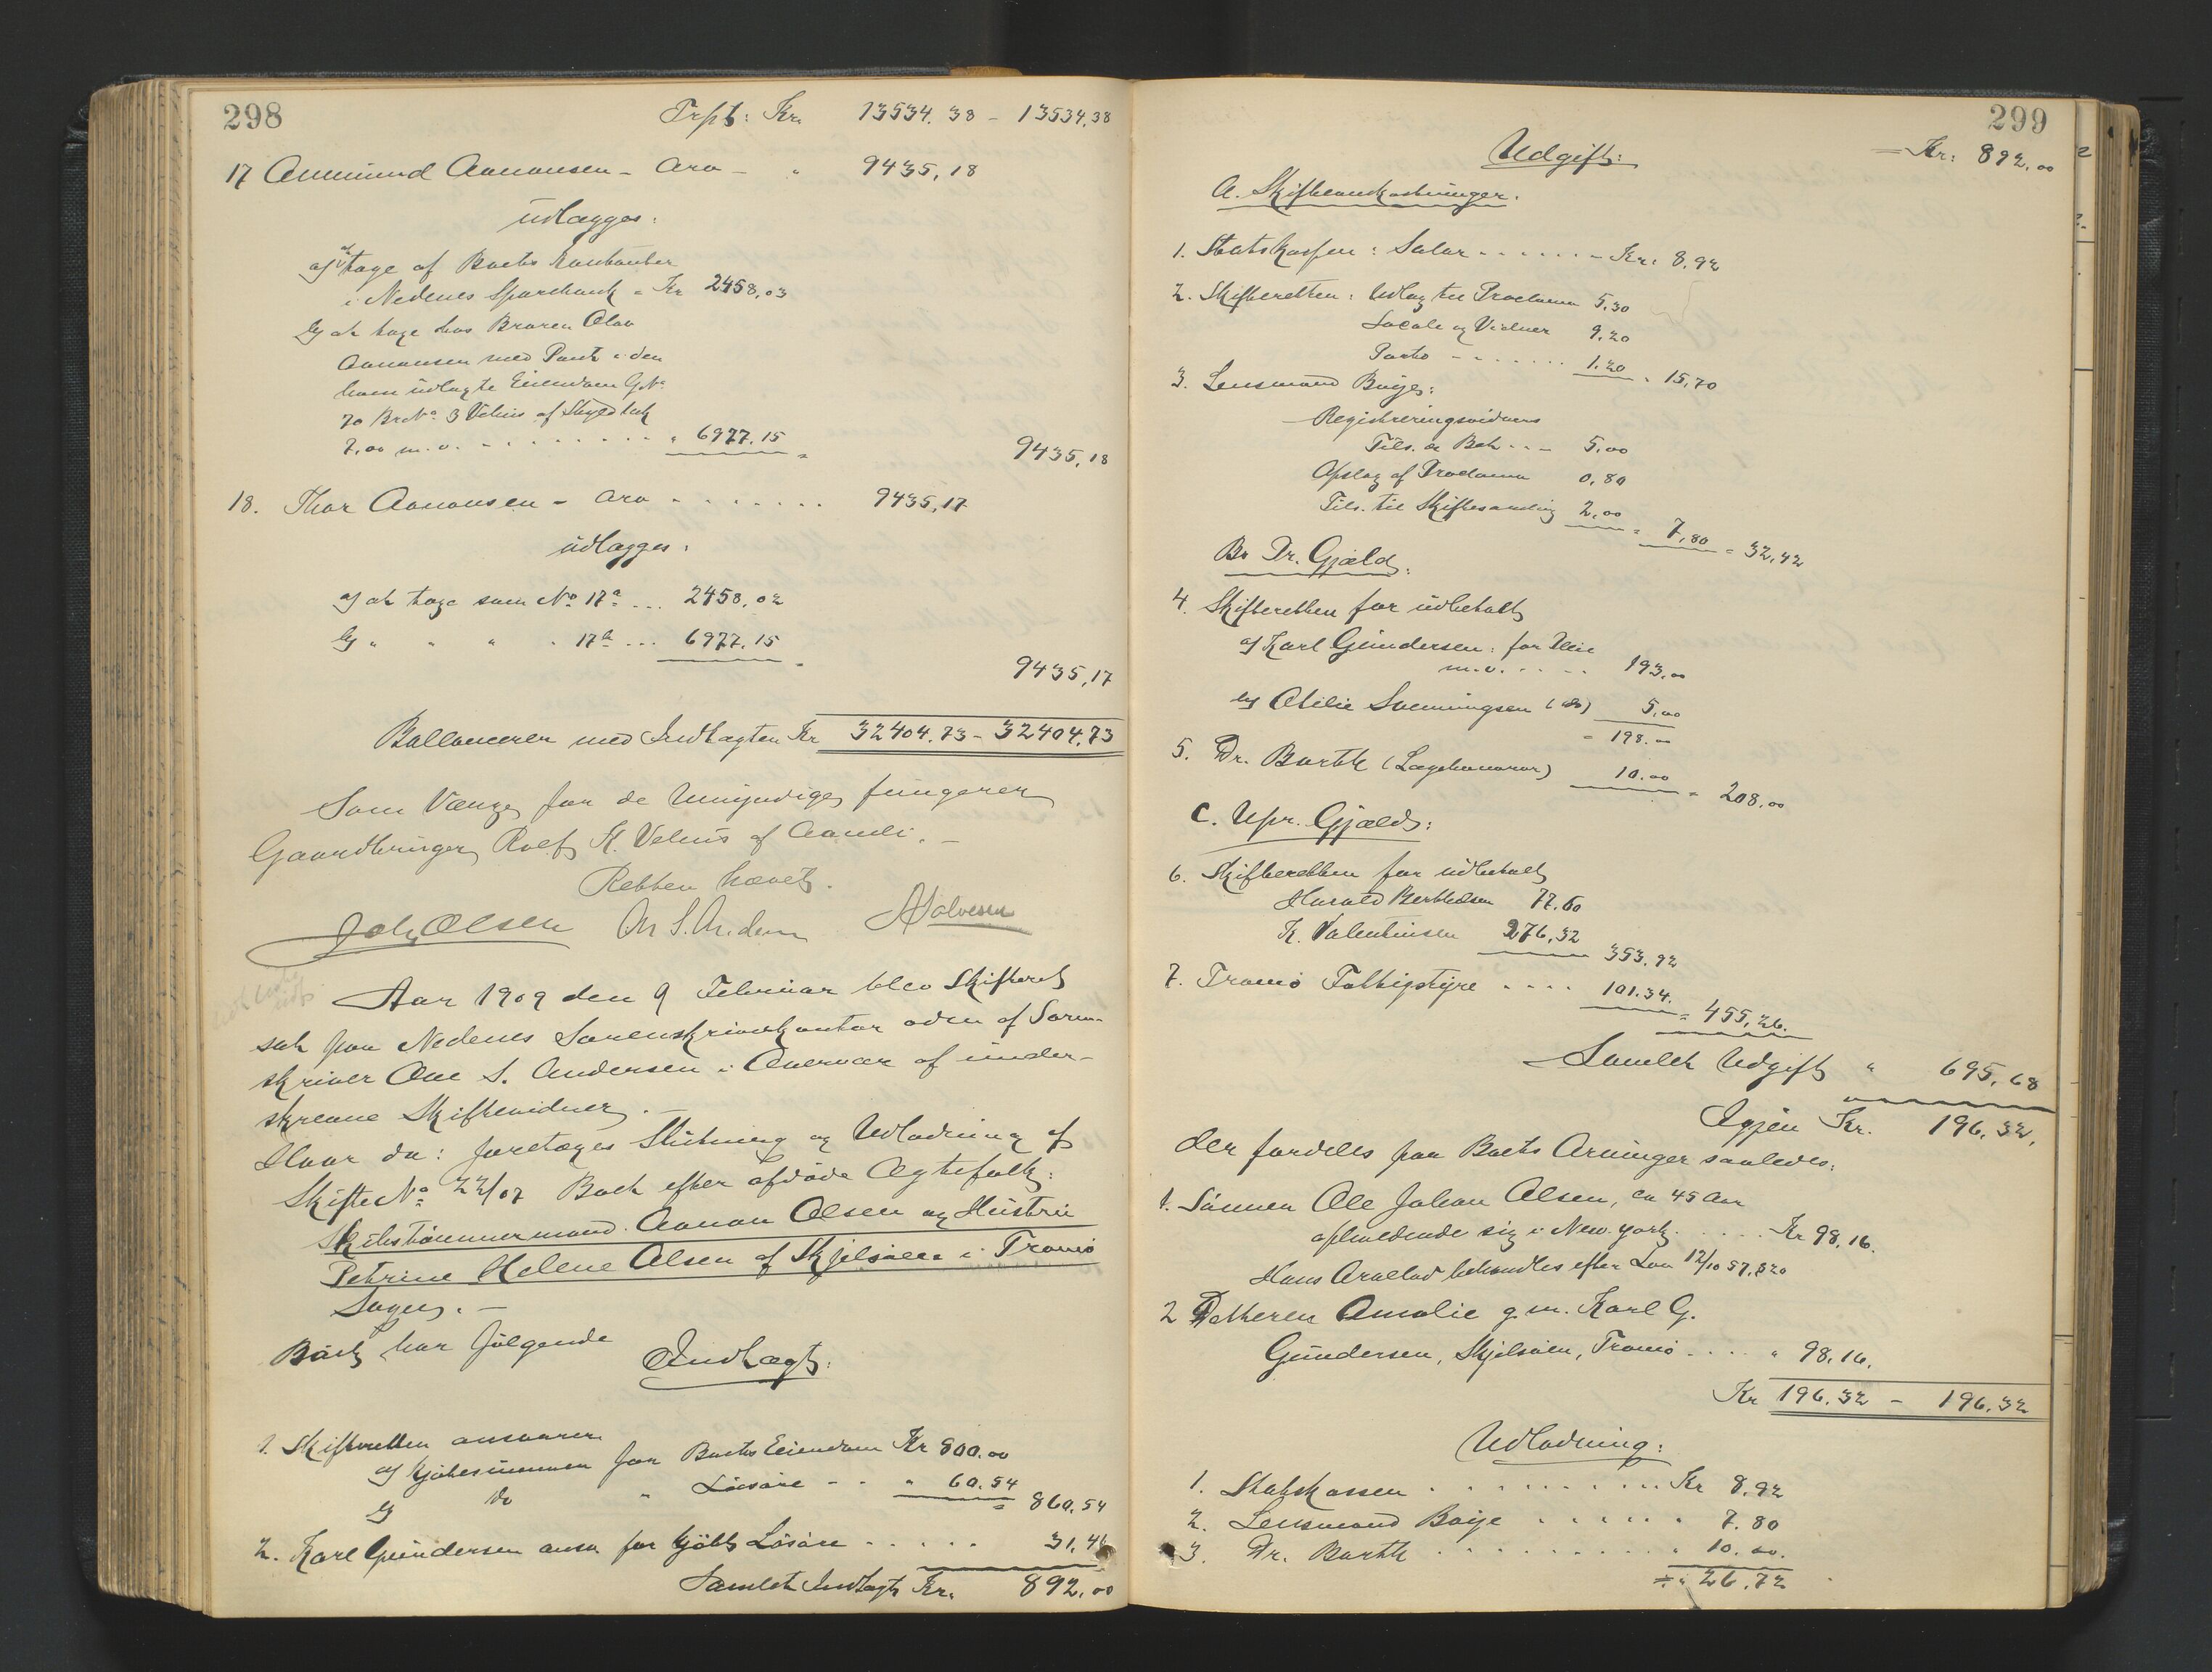 298
Trpt: Kr. 13534.38 - 13534,38
17 Aanund Aanonsen - Arv - " 9435,18
udlægges:
a) at tage af Boets Kontanter
i Nedenes Sparebank = Kr 2458,03
b) at tage hos Broren Olav
Aanonsen med Pant i den
ham udlagte Eiendom G.No
70 Br.No 3 Vehus af Skyld Mk
7,00 m.v. - - - - - - - - " 6977.15 = 9435,18
18. Thor Aanonsen - Arv - . . . . . . 9435,17
udlægges:
a) at tage som No 17a ... 2458,02
b) " " " " 17b ... 6977.15 = 9435,17
Ballancerer med Indtægten Kr 32404.73 - 32404.73
Som Værge for de Umyndige fungerer
Gaardbruger Rolf K. Vehus af Aamli. -
Retten hævet.
Joh Olsen Ov S. Andersen A Halvorsen
Aar 1909 den 9 Februar blev Skifteret
sat paa Nedenes Sorenskriverkontor aden af Soren-
skriver Ove S. Andersen i Overvær af under-
skrevne Skiftevidner. -
Hvor da: foretages Slutning og Udlodning af
Skifte No 22/07 Boet efter afdøde Ægtefolk:
Skibstømmermand Aanon Olsen og Hustru
Petrine Helene Olsen af Skjelsøen i Tromø
Sogn. -
Boet har følgende
Indtægt:
1. Skifteretten ansvarer
a) Kjøbesummen for Boets Eiendom Kr 800.00
b) do " Løsøre - - " 60.54 = 860.54
2. Karl Gundersen ansv for kjøbt Løsøre . . . . . 31,46
Samlet Indtægt Kr. 892,00
299
Kr: 892,00
Udgift:
A. Skifteomkostninger.
1. Statskassen: Salær - - - - - - Kr: 8,92
2. Skifteretten: Udlæg til Proclama 5,30
Locale og Vidner 9,20
Porto - - - - - - - 1.20 " 15,70
3. Lensmand Boije:
Registreringsvidners
Tils. og Bek - - - 5,00
Opslag af Proclama 0,80
Tils. til Skiftesamling 2,00 = 7,80 = 32,42
B. Pr. Gjæld:
4. Skifteretten for udbetalt
a) Karl Gundersen: for Pleie
m.v. . . . . 193,00
b) Otilie Svenningsen (do) 5,00
= 198.00
5. Dr. Barth (Lægehonorar) 10.00 = 208,00
C. Upr. Gjæld:
6. Skifteretten for udbetalt
Harald Berthelsen 77.60
K. Valentinsen 276,32 353,92
7. Tromø Fattigstyre - - - - 101.34. = 455,26.
Samlet Udgift " 695,68
Igjen Kr. 196,32,
der fordeles paa Boets Arvinger saaledes:
1. Sønnen Ole Johan Olsen, ca 45 Aar
opholdende sig i New York . . . . . Kr 98,16.
Hans Arvelod behandles efter Lov 12/10 57,§20
2 Datteren Amalie g.m. Karl G.
Gundersen, Skjelsøen, Tromø . . . . " 98,16.
Kr 196.32 - 196.32
Udlodning:
1. Statskassen . . . . . . . . . . Kr 8,92
2. Lensmand Boije . . . . . . " 7.80
3. Dr. Barth . . . . . . . . . . " 10.00.
= " 26,72